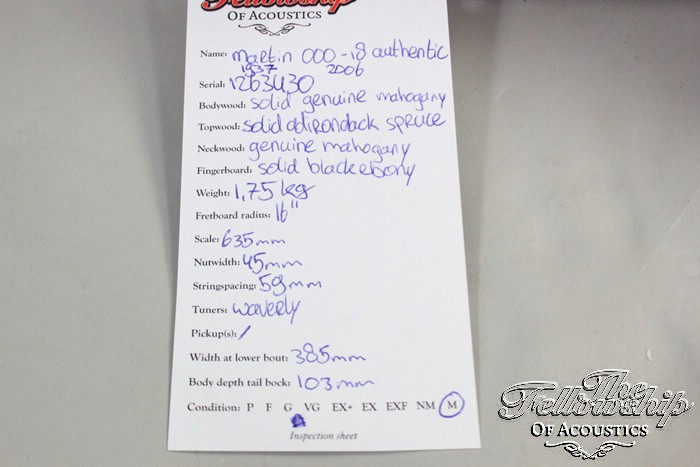 Fellowship
OF ACOUSTICS
Name: Martin 000-18 authentic
1937 2006
Serial: 1263430
Bodywood: solid genuine mahogany
Topwood: solid adirondack spruce
Neckwood: genuine mahogany
Fingerboard: solid black ebony
Weight: 1,75 kg
Fretboard radius: 16"
Scale: 635mm
Nutwidth: 45mm
Stringspacing: 59mm
Tuners: waverly
Pickup(s): /
Width at lower bout: 385mm
Body depth tail bock: 103mm
Condition: P F G VG EX+ EX EXF NM M
Inspection sheet
The
Fellowship
OF ACOUSTICS